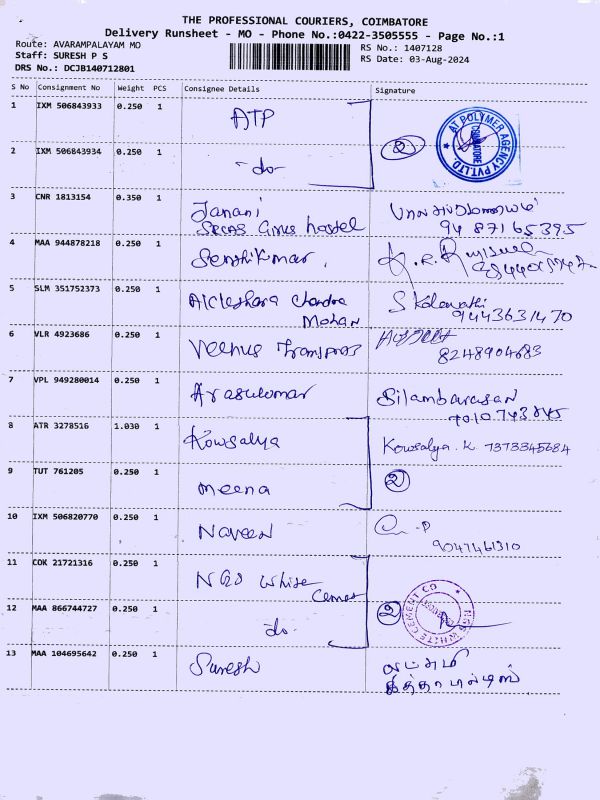 THE PROFESSIONAL COURIERS, COIMBATORE
Delivery Runsheet - MO - Phone No.:0422-3505555 - Page No.:1
Route: AVARAMPALAYAM MO
Staff: SURESH P S
DRS No.: DCJB140712801
RS No.: 1407128
RS Date: 03-Aug-2024
S No Consignment No Weight PCS Consignee Details Signature
1 IXM 506843933 0.250 1 ATP
AT POLYMER AGENCY PVT.LTD.
COIMBATORE
2 IXM 506843934 0.250 1 -do- 2
3 CNR 1813154 0.350 1 Janani
Hostel 94 87165395
4 MAA 944878218 0.250 1 Senthilkumar.
5 SLM 351752373 0.250 1 Chandra S Kalavathi
Mohan 9443631470
6 VLR 4923686 0.250 1
8248904683
7 VPL 949280014 0.250 1 Arasukumar Silambarasan
7010743845
8 ATR 3278516 1.030 1 Kowsalya Kowsalya. K 7373345684
9 TUT 761205 0.250 1 Meena 2
10 IXM 506820770 0.250 1 Naveen
9047461310
11 COK 21721316 0.250 1 NGP White
Cement
12 MAA 866744727 0.250 1 do. 2
NGP WHITE CEMENT CO
13 MAA 104695642 0.250 1 Suresh லட்சுமி